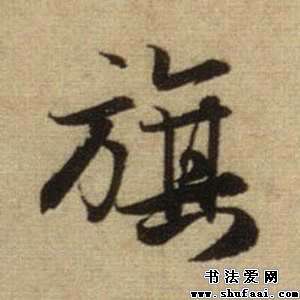 旗
书法爱网
www.shufaai.com